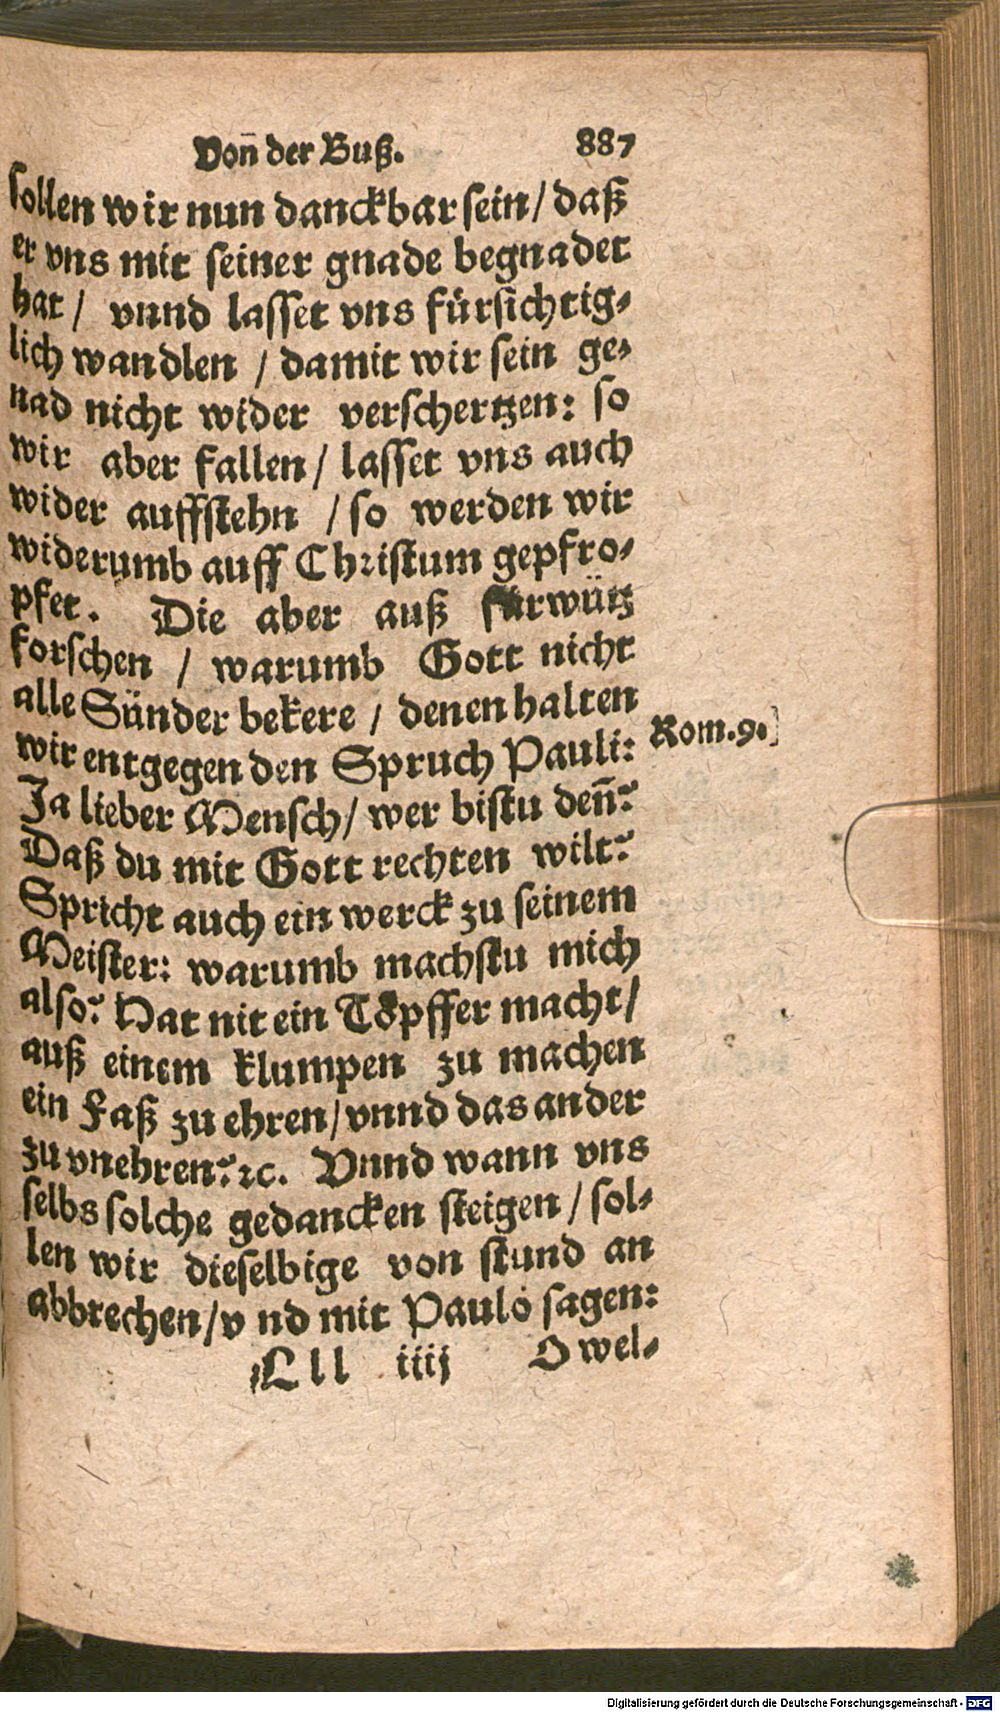 Von̄ der Buß. 887
sollen wir nun danckbar sein/ daß
er vns mit seiner gnade begnadet
hat/ vnnd lasset vns fürsichtig-
lich wandlen / damit wir sein ge-
nad nicht wider verschertzen: so
wir aber fallen/ lasset vns auch
wider auffstehn / so werden wir
widerumb auff Christum gepfro-
pfet. Die aber auß fürwütz
forschen / warumb Gott nicht
alle Sünder bekere / denen halten
wir entgegen den Spruch Pauli: Rom.9.]
Ja lieber Mensch/ wer bistu den̄?
Daß du mit Gott rechten wilt?
Spricht auch ein werck zu seinem
Meister: warumb machstu mich
also? Hat nit ein Töpffer macht/
auß einem klumpen zu machen
ein Faß zu ehren/ vnnd das ander
zu vnehren? ꝛc. Vnnd wann vns
selbs solche gedancken steigen / sol-
len wir dieselbige von stund an
abbrechen/ v nd mit Paulo sagen:
Lll iiij O wel-
Digitalisierung gefördert durch die Deutsche Forschungsgemeinschaft - DFG